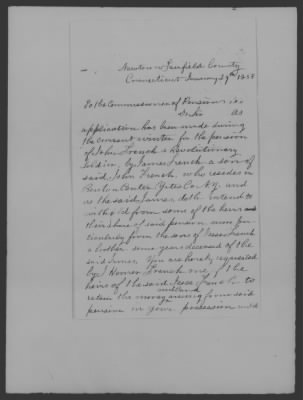 Newtown Fairfield County
Connecticut January 29th 1858
To the Commissioner of Pensions
As
application has been made during
the current winter for the pension
of John French a Revolutionary
Soldier, by James French a son of
said John French, who resides in
Benton Center Yates Co. N.Y. and
as the said James, doth intend to
withold from some of the heirs
their share of said pension more par-
ticularly from the sons of Jesse French
a brother some years deceased of the
said James. You are hereby requested
by Homer French one of the
heirs of the said Jesse French to
retain the money arising from said
pension in your possession until